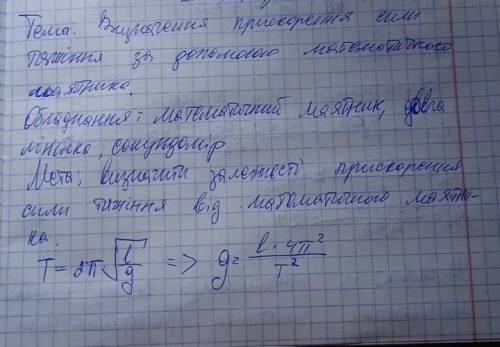 Тема: Визначення прискорення сили
тяжіння за допомогою математичного
маятника.
Обладнання: математичний маятник, довга
лінійка, секундомір
Мета: визначити залежності прискорення
сили тяжіння від математичного маятни-
ка.
T = 2π√(l/g) => g = l·4π²/T²